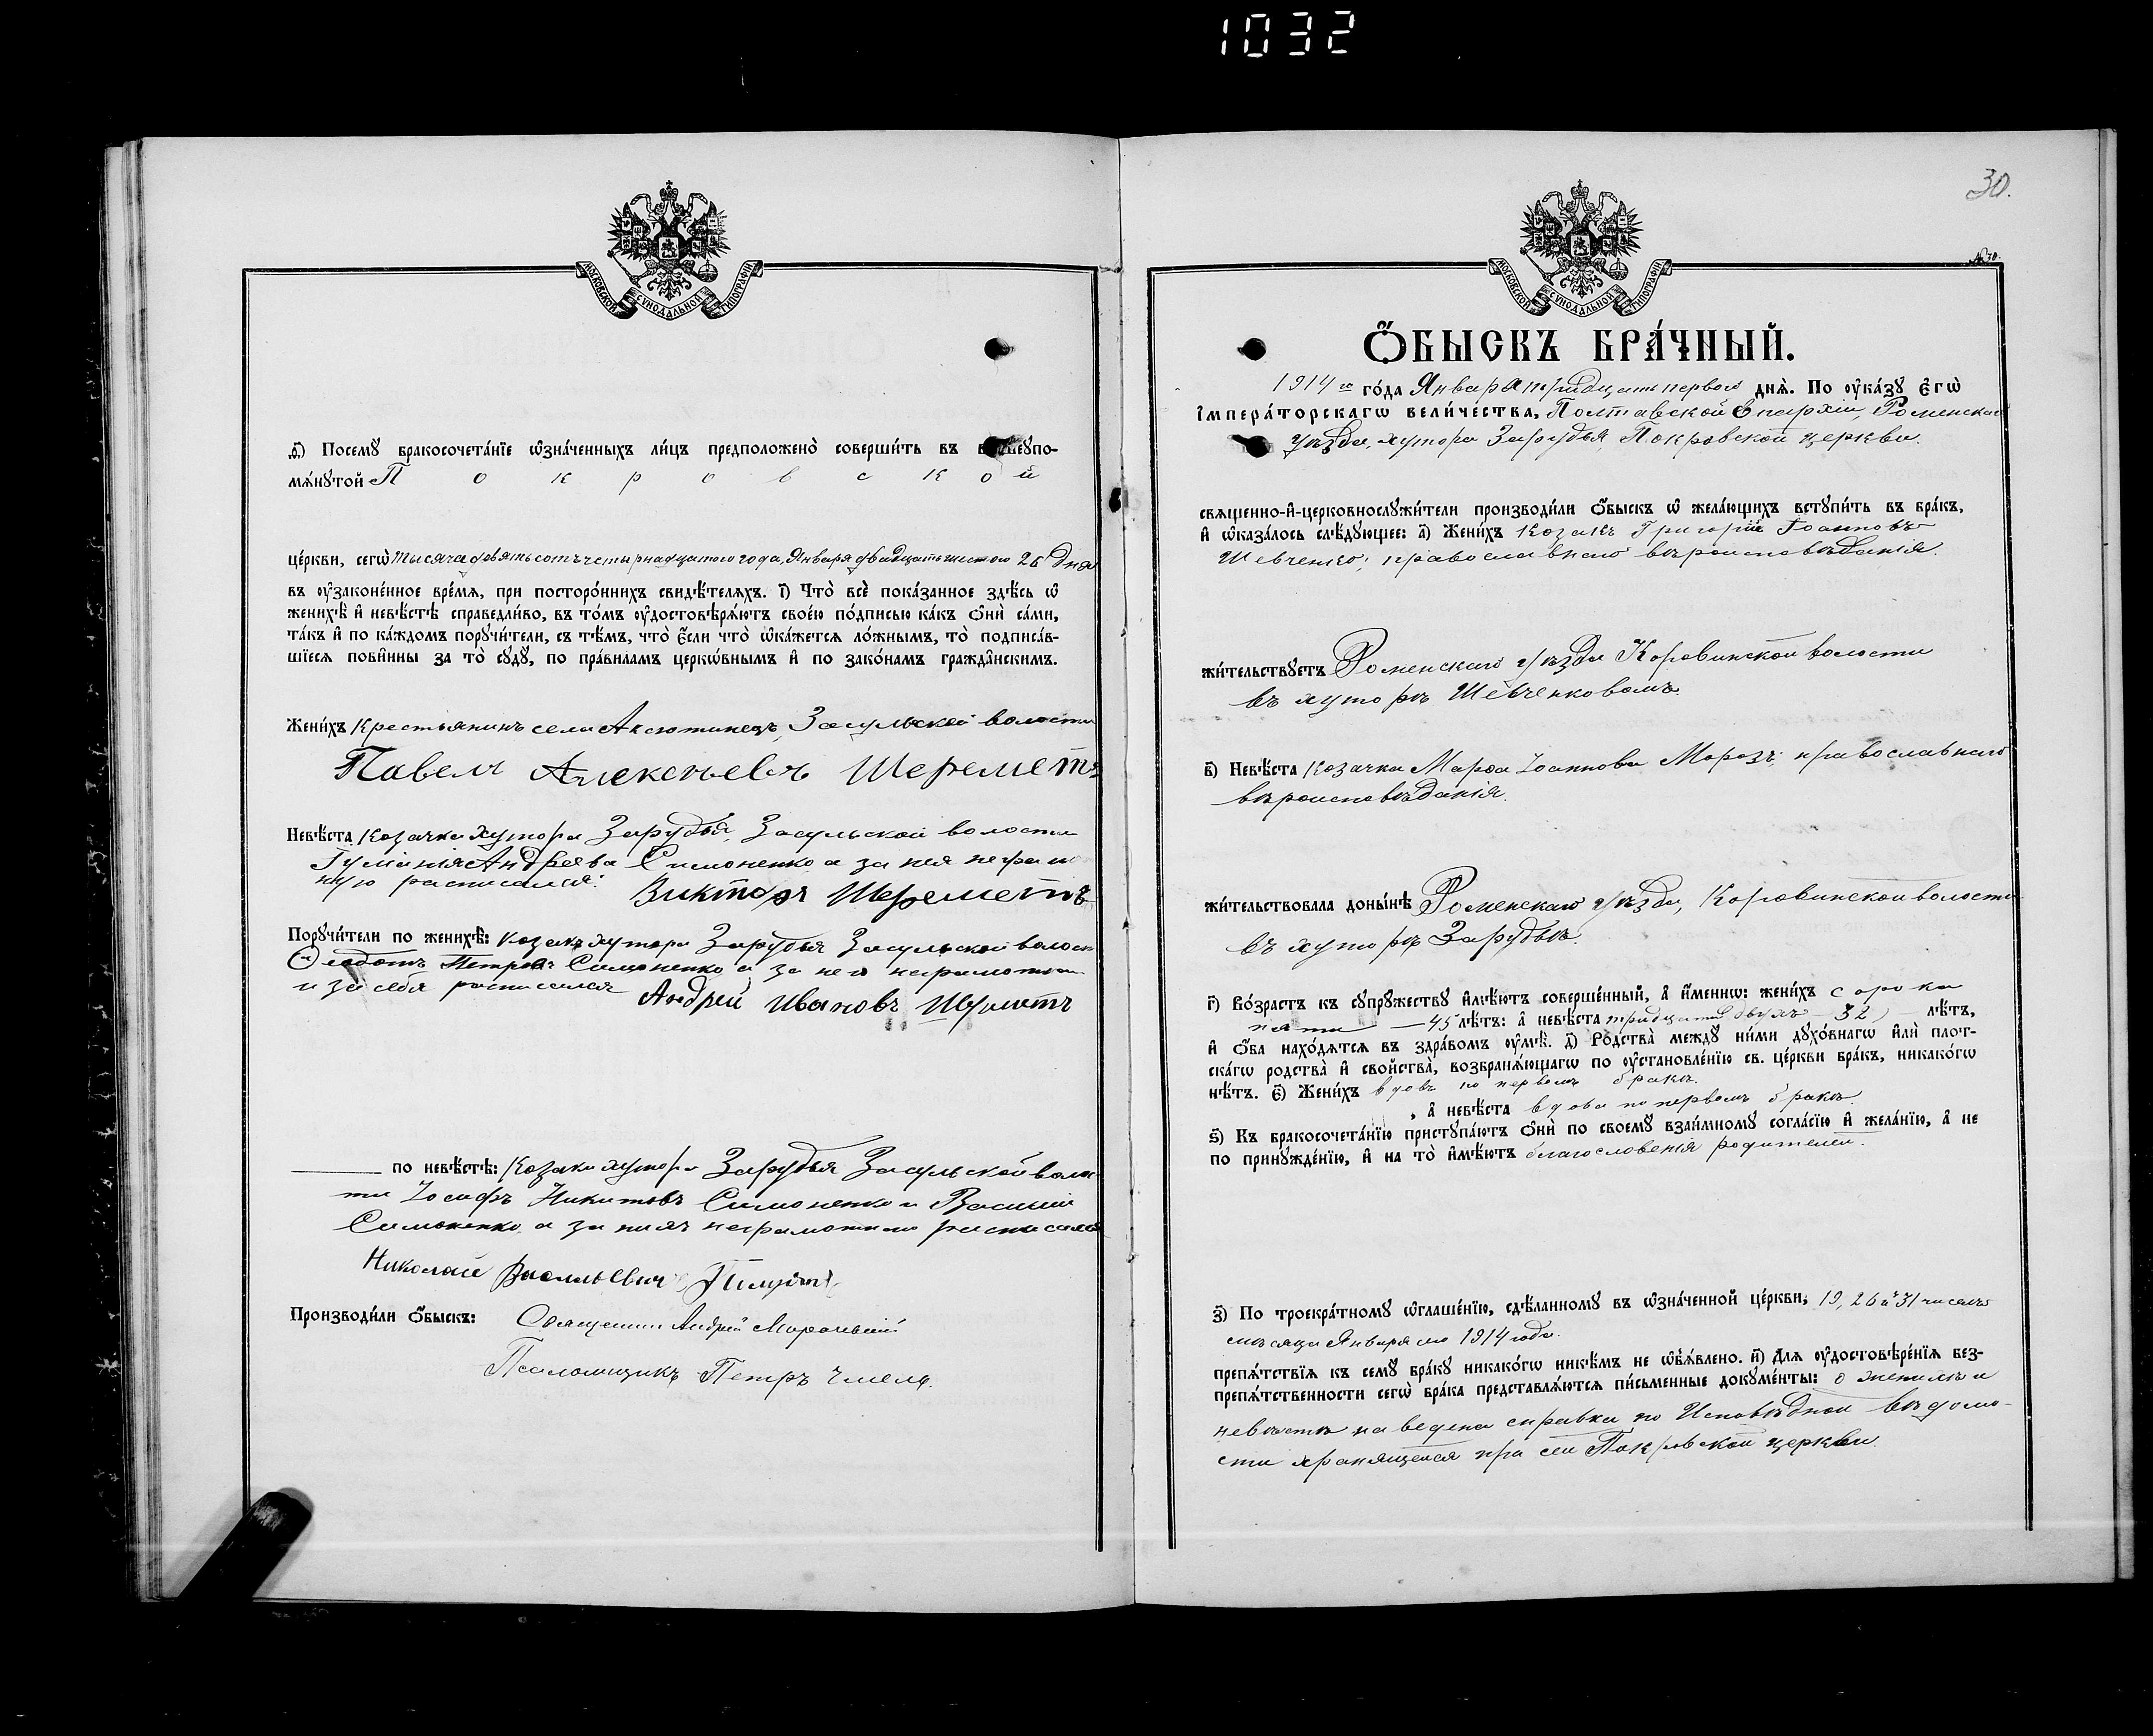 1032
МОСКОВСКОЙ СѴНОДАЛЬНОЙ ТИПОГРАФІИ
ѳ҃) Посемꙋ бракосочета́нїе ѡ҆зна́ченныхъ ли́цъ предположено̀ соверши́ть въ вышеупо-
мѧ́нꙋтой Покровской
це́ркви, сегѡ̀ тысяча девятьсотъ четырнадцатого года, Января двадцать шестого 26 дня
въ ᲂу҆зако́ненное вре́мѧ, при посторо́ннихъ свидѣ́телѧхъ. і҃) Что̀ всѐ пока́занное здѣ́сь ѡ҆
женихѣ̀ и҆ невѣ́стѣ справедли́во, въ то́мъ ᲂу҆достовѣрѧ́ютъ свое́ю по́дписью ка́къ ѻ҆нѝ са́ми,
та́къ и҆ по ка́ждомъ порꙋчи́тели, съ тѣ́мъ, что̀ є҆́сли что̀ ѡ҆ка́жется ло́жнымъ, то̀ подписа́в-
шїеся пови́нны за то̀ сꙋдꙋ̀, по пра́виламъ церкѡ́внымъ и҆ по зако́намъ гражда́нскимъ.
Жени́хъ Крестьянинъ села Аксютинецъ, Засульской волости
Павелъ Алексѣевъ Шереметъ
Невѣ́ста Козачка хутора Зарудья, Засульской волости
Андреева Симоненко а за нея неграмот
ную расписался: Викторъ Шереметъ
Порꙋчи́тели по женихѣ̀: козакъ хутора Зарудья Засульской волости
Петровъ Симоненко а за него неграмотнаго
и за себя расписался Андрей Ивановъ Шереметъ
по невѣ́стѣ: Козаки хутора Зарудья Засульской волос
ти Іосифъ Никитовъ Симоненко и Василій
Симоненко, а за нихъ неграмотныхъ расписался
Николай Васильевич
Производи́ли ѻ҆́быскъ: Священникъ Андрей
Псаломщикъ Петръ Чмель.
30.
№ 30.
МОСКОВСКОЙ СѴНОДАЛЬНОЙ ТИПОГРАФІИ
Ѻ҆́БЫСКЪ БРА́ЧНЫЙ.
1914 го го́да Января тридцать первого днѧ̀. По ᲂу҆ка́зꙋ є҆гѡ̀
и҆мпера́торскагѡ вели́чества, Полтавской Епархіи, Роменскаго
уѣзда, хутора Зарудья, Покровской церкви.
свѧщенно-и҆-церковнослꙋжи́тели производи́ли ѻ҆́быскъ ѡ҆ жела́ющихъ встꙋпи́ть въ бра́къ,
и҆ ѡ҆каза́лось слѣ́дꙋющее: а҃) Жени́хъ козакъ Григорій Іоанновъ
Шевченко; православнаго вѣроисповѣданія.
жи́тельствꙋетъ Роменскаго уѣзда Коровинской волости
въ хуторѣ Шевченковомъ.
в҃) Невѣ́ста Козачка Марѳа Іоаннова Морозъ, православнаго
вѣроисповѣданія.
жи́тельствовала доны́нѣ Роменскаго уѣзда, Коровинской волости
въ хуторѣ Зарудьѣ.
г҃) Во́зрастъ къ сꙋпрꙋ́жествꙋ и҆мѣ́ютъ соверше́нный, а҆ и҆́меннѡ: жени́хъ сорока
пяти — 45 лѣ́тъ: а҆ невѣ́ста тридцати двухъ — 32 — лѣ́тъ,
и҆ ѻ҆́ба нахо́дятся въ здра́вомъ ᲂу҆мѣ̀. д҃) Родства̀ междꙋ ни́ми дꙋхо́внагѡ и҆лѝ плот-
ска́гѡ родства̀ и҆ свойства̀, возбранѧ́ющагѡ по ᲂу҆становле́нїю св. це́ркви бра́къ, никако́гѡ
нѣ́тъ. є҃) Жени́хъ вдовъ по первомъ бракѣ.
, а҆ невѣ́ста вдова по первомъ бракѣ.
ѕ҃) Къ бракосочета́нїю пристꙋпа́ютъ ѻ҆нѝ по своемꙋ̀ взаи́мномꙋ согла́сїю и҆ жела́нїю, а҆ не
по принꙋжде́нїю, и҆ на то̀ и҆мѣ́ютъ благословенія родителей.
з҃) По троекра́тномꙋ ѡ҆глаше́нїю, сдѣ́ланномꙋ въ ѡ҆зна́ченной це́ркви, 19, 26 и 31 числъ
мѣсяца Января мо 1914 года.
препѧ́тствїѧ къ семꙋ̀ бра́кꙋ никако́гѡ никѣ́мъ не ѡ҆б̾ѧ́влено. и҃) Для ᲂу҆достовѣре́нїѧ без-
препѧ́тственности сегѡ̀ бра́ка представлѧ́ются пи́сьменные докꙋме́нты: о женихѣ и
невѣстѣ наведена справка по Исповѣдной вѣдомо-
сти хранящейся при сей Покровской церкви.